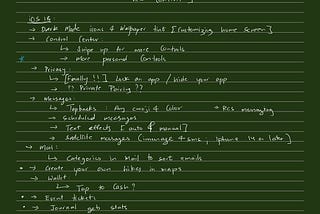 iOS 18:
→ Dark Mode icons & Wallpaper tint [Customizing home screen]
→ Control Center:
↳ Swipe up for more controls
→ more personal controls
→ Privacy:
↳ [Finally !!] Lock an app / hide your app
→ ?? Private Pairing ??
→ Messages
↳ Tapbacks: Any emoji & color → Rcs messaging
→ Scheduled messages
→ Text effects [auto & manual]
→ Satellite messages (imessage & sms, Iphone 14 or later)
→ Mail:
↳ Categories in Mail to sort emails
• → Create your own hikes in maps
→ Wallet
↳ Tap to Cash?
• → Event tickets
• → Journal gets stats